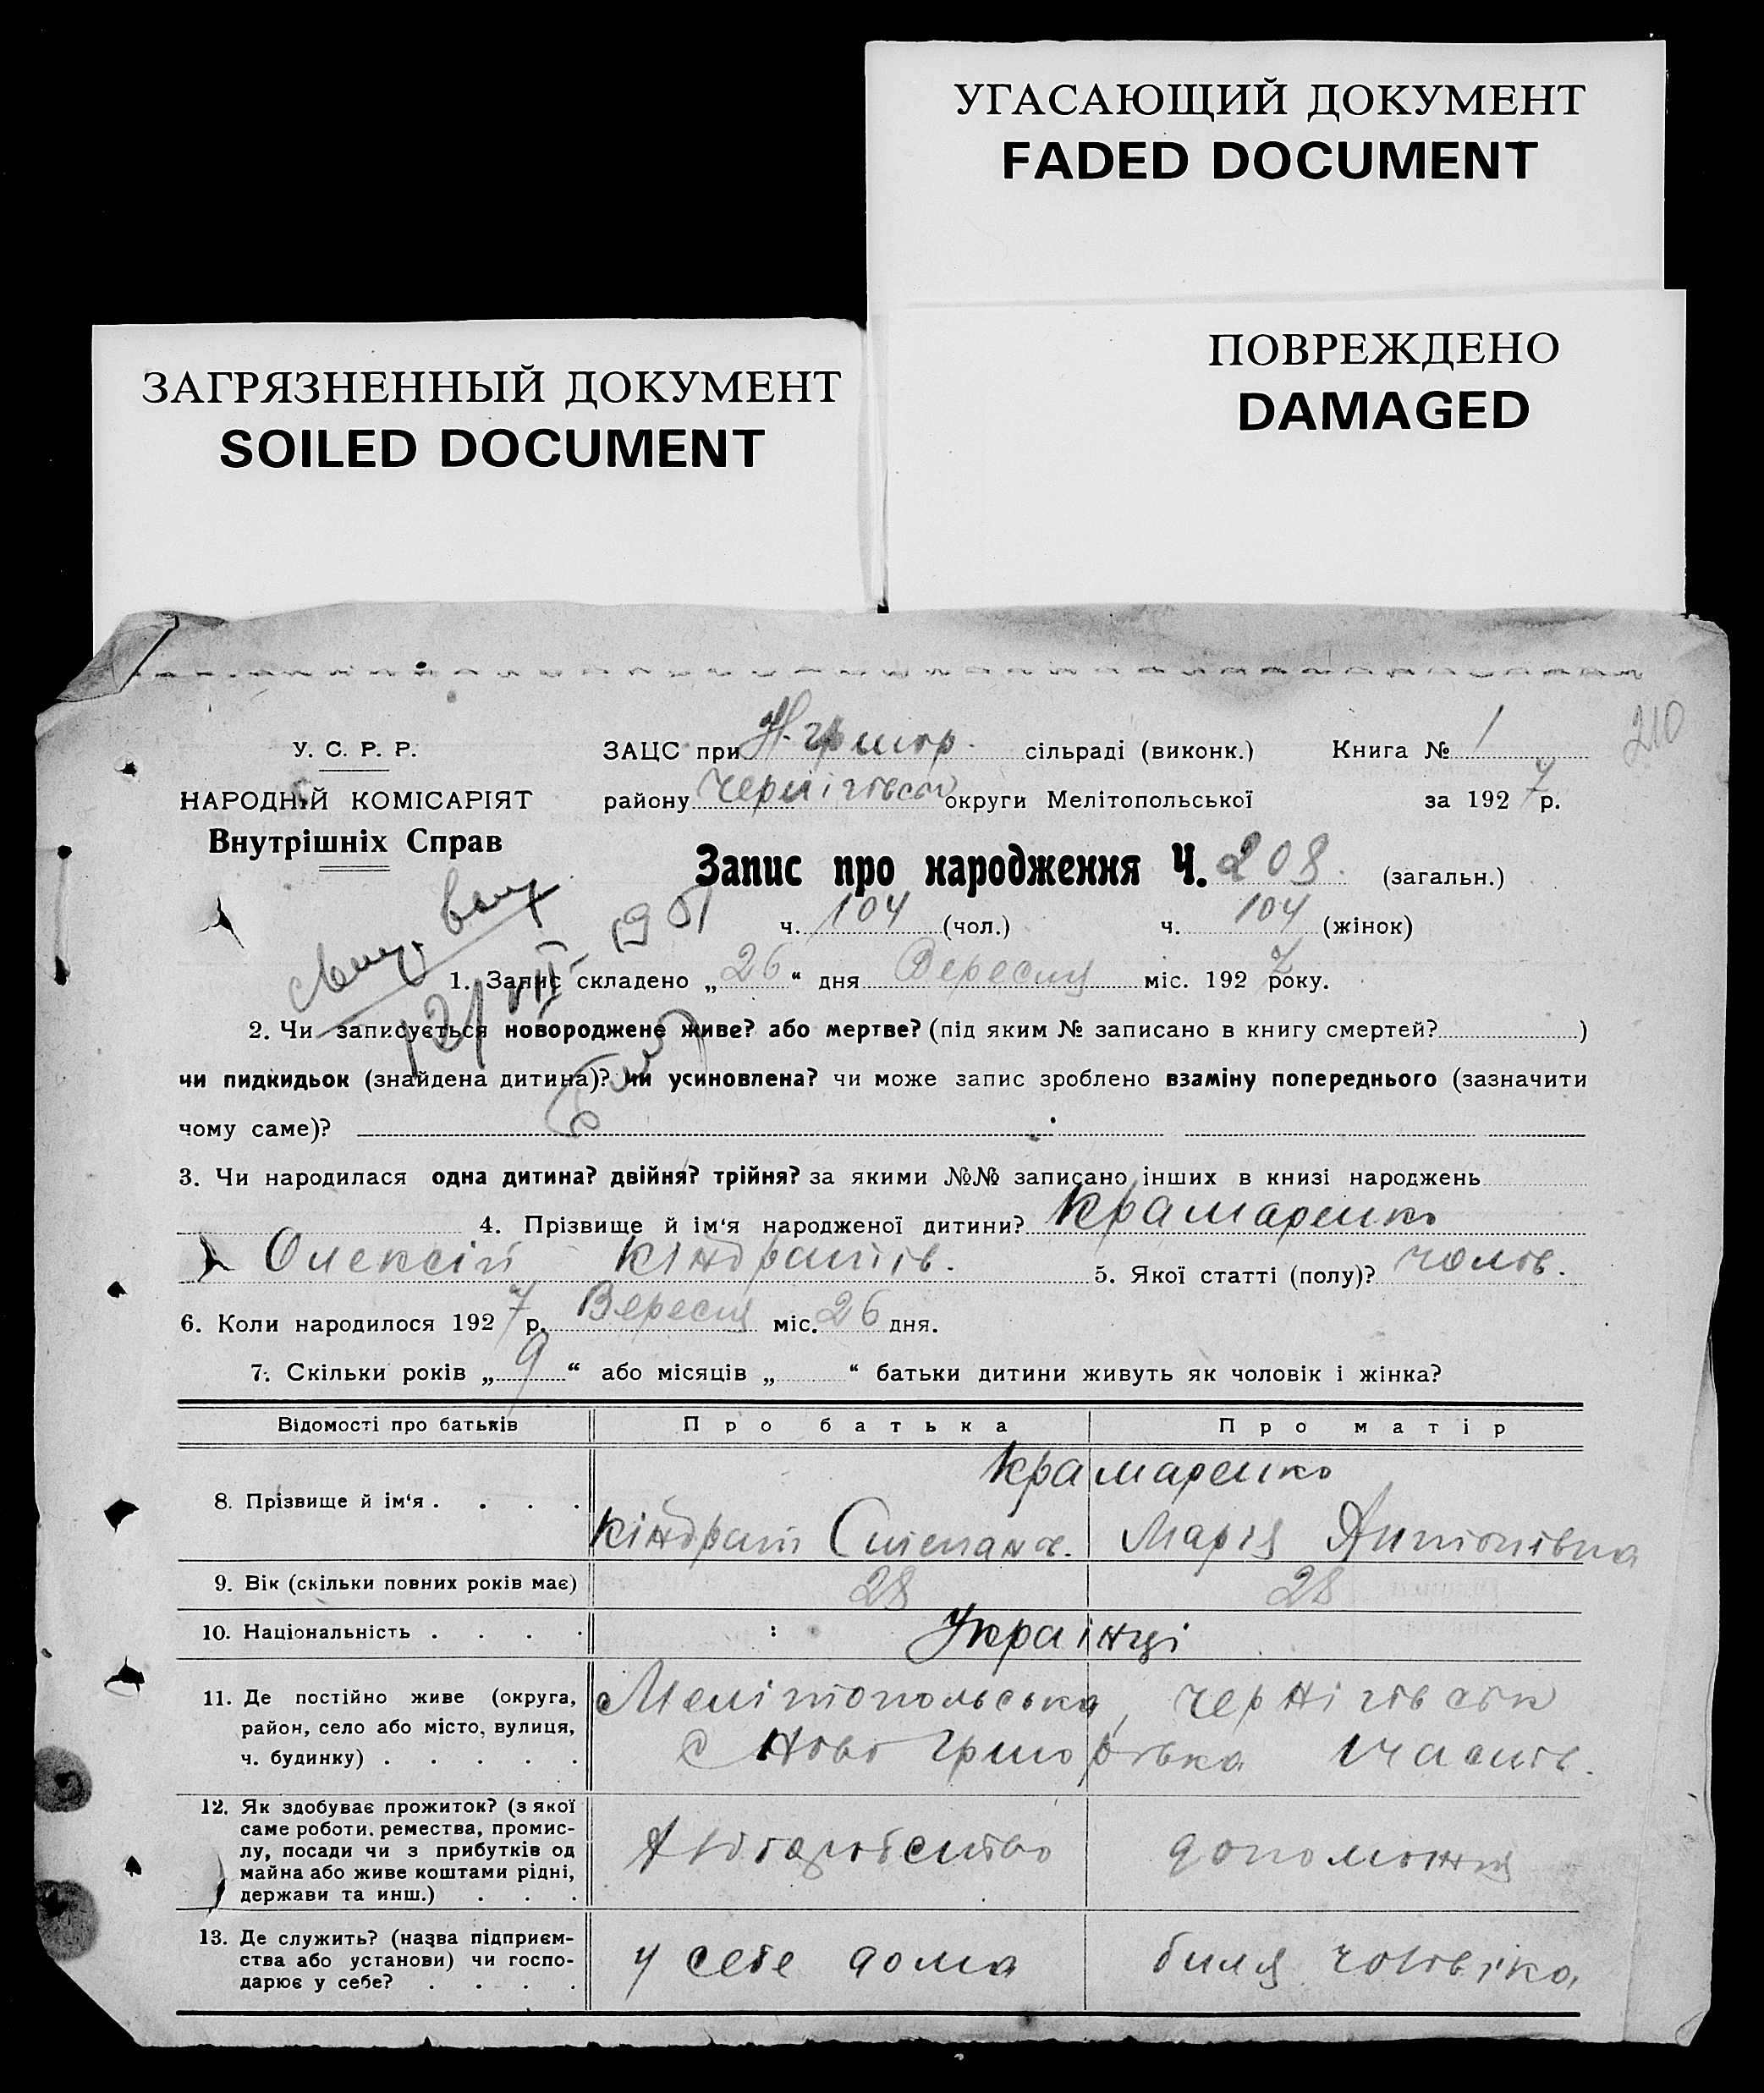 УГАСАЮЩИЙ ДОКУМЕНТ
FADED DOCUMENT
ПОВРЕЖДЕНО
DAMAGED
ЗАГРЯЗНЕННЫЙ ДОКУМЕНТ
SOILED DOCUMENT
210
У. С. Р. Р.
НАРОДНІЙ КОМІСАРІЯТ
Внутрішніх Справ
ЗАЦС при Н.-григор. сільраді (виконк.) Книга № 1
району Чернігівськ округи Мелітопольської за 1927 р.
Запис про народження Ч. 208. (загальн.)
ч. 104 (чол.) ч. 104 (жінок)
1. Запис складено „26“ дня Вересня міс. 1927 року.
2. Чи записується новороджене живе? або мертве? (під яким № записано в книгу смертей?)
чи пидкидьок (знайдена дитина)? чи усиновлена? чи може запис зроблено взаміну попереднього (зазначити
чому саме)?
3. Чи народилася одна дитина? двійня? трійня? за якими №№ записано інших в книзі народжень
4. Прізвище й ім‘я народженої дитини? Крамаренко
Олексій Кіндратів. 5. Якої статті (полу)? чолов.
6. Коли народилося 1927 р. Вересня міс. 26 дня.
7. Скільки років „9“ або місяців „ “ батьки дитини живуть як чоловік і жінка?
Відомості про батьків Про батька Про матір
8. Прізвище й ім‘я . . . . Крамаренко
Кіндрат Степанов. Марія Антонівна
9. Вік (скільки повних років має) 28 28
10. Національність . . . . Українці
11. Де постійно живе (округа, район, село або місто, вулиця, ч. будинку) . . . . .
Мелітопольська, Чернігівськ
с Ново Григорівка
12. Як здобуває прожиток? (з якої саме роботи, ремества, промислу, посади чи з прибутків од майна або живе коштами рідні, держави та инш.) . . .
хліборобство допоможня
13. Де служить? (назва підприємства або установи) чи господарює у себе? . . . .
у себе дома биля чоловіка